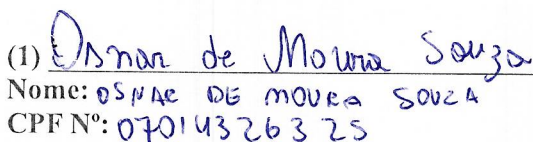 (1) Osnar de Moura Souza
Nome: OSNAR DE MOURA SOUZA
CPF Nº: 07014326325